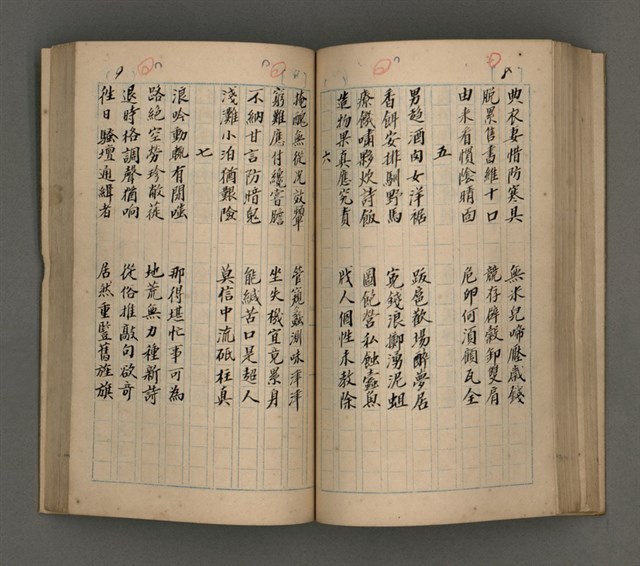 8
典衣妻惜防寒具 無米兒啼壓歲錢
脫累售書維十口 競存僻穀卸雙肩
由来看慣陰晴面 危卵何須願瓦全
五
男趨酒肉女洋裾 跋扈歡場醉夢居
香餌安排馴野馬 冤錢浪擲湧泥蛆
療饑嘯夥炊詩飯 圖飽營私蝕蠹魚
造物果真應究責 戕人個性未教除
六
掩醜無從况效顰 管窺蠡測味津津
窮難應付纔嘗膽 坐失機宜竟累身
不納甘言防惜躬 能緘苦口是超人
淺灘小泊猶艱險 莫信中流砥柱真
七
浪吟動輒有閒嗤 那得堪忙事可為
路絕空勞珍敝蓰 地荒無力種新詩
退時格調聲猶响 從俗推敲句欲奇
往日騷壇通緝者 居然重豎舊旌旗
9